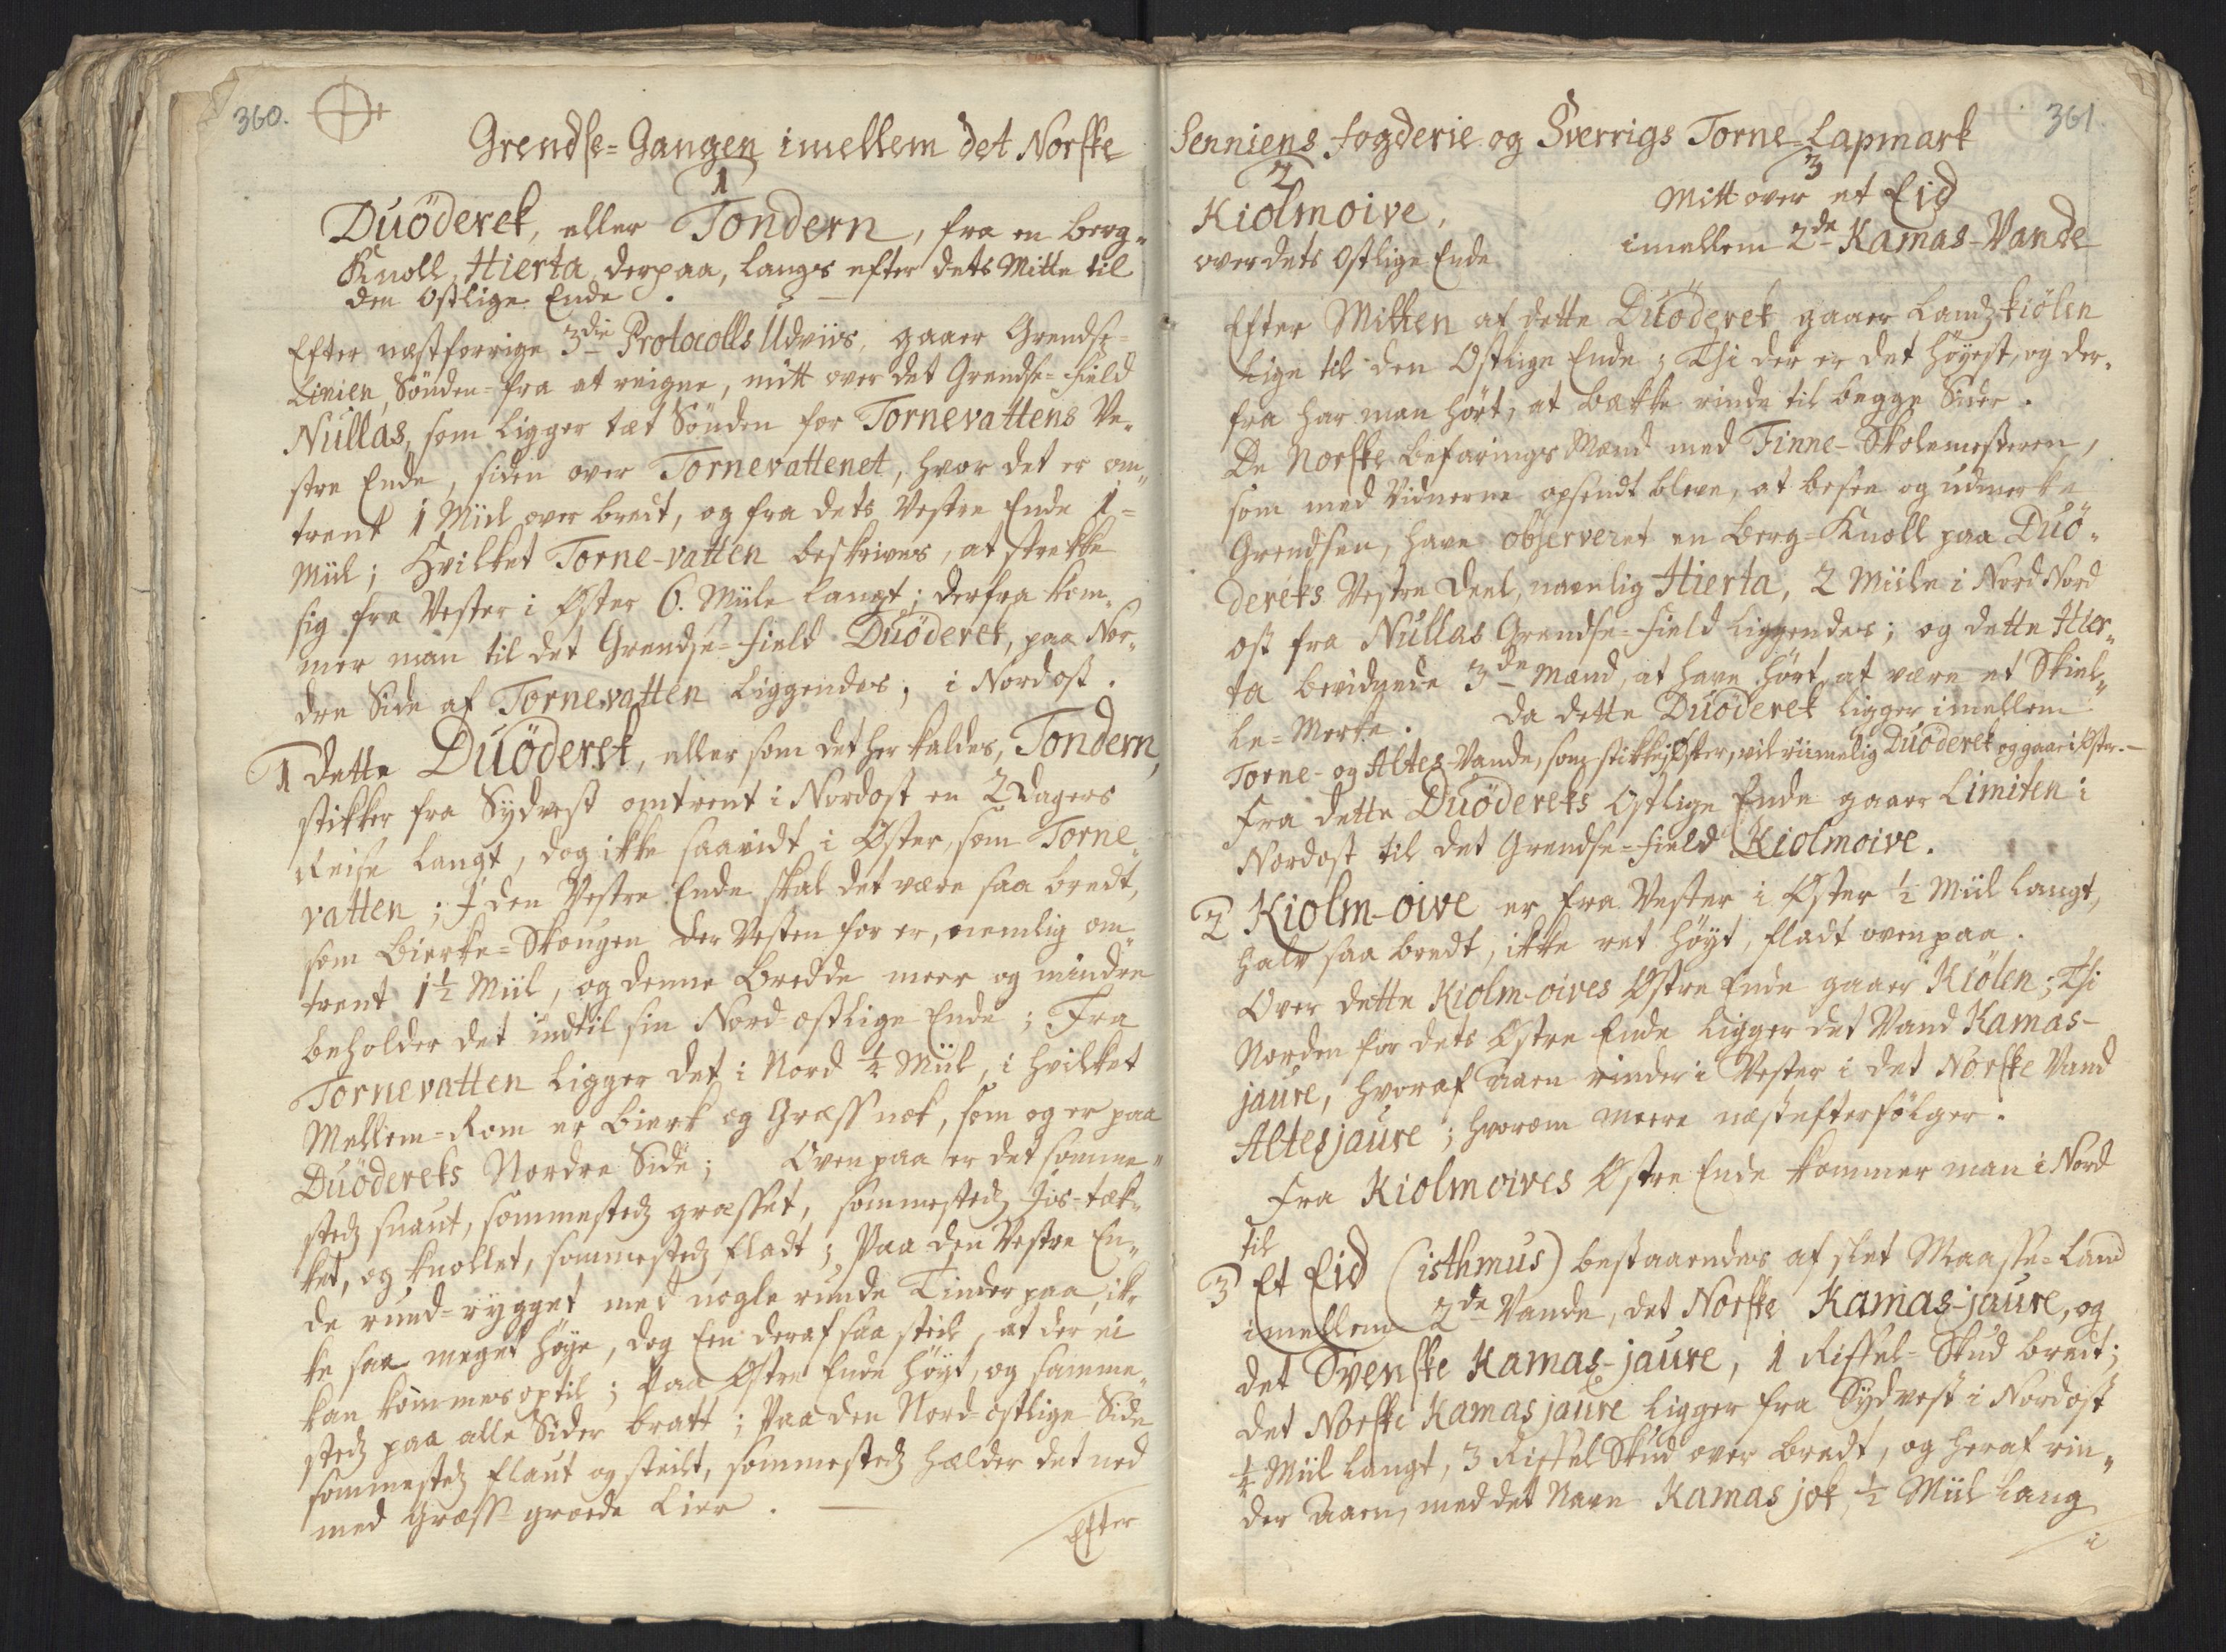 360.
Grendse=Gangen imellem det Norske
1
Duöderek, eller Tondern, fra en berg-
Knoll, Hierta derpaa, langs efter dets Mitte til
den Ostlige Ende.
Efter næstforrige 3die Protocolls Udviis, gaaer Grendse-
Linien, Sönden-fra at reigne, mitt over det Grendse-field
Nullas, som ligger tæt Sönden for Tornevattens Ve-
stre Ende, siden over Tornevattenet, hvor det er om-
trent 1 Miil over bredt, og fra dets Vestre Ende 1=
Miil; Hvilket Torne-vatten beskrives, at strekke
sig fra Vester i Öster 6. Miile langt; derfra kom-
mer man til det Grendse-field Duöderek, paa Nor-
dre Side af Tornevatten liggendes, i Nordost.
1 Dette Duöderek, eller som det her kaldes, Tondern,
stikker fra Sydvest omtrent i Nordost en 2 Dagers
Reise langt, dog ikke saavidt i Öster, som Torne-
vatten; I den Vestre Ende skal det være saa bredt,
som Bierke=Skougen der Vesten for er, nemlig om-
trent 1½ Miil, og denne Bredde meer og mindre
beholder det indtil sin Nord-ostlige Ende; Fra
Tornevatten ligger det i Nord ¼ Miil, i hvilket
Mellem=Rom er Bierk og Græss nok, som og er paa
Duödereks Nordre Side; Oven paa er det somme-
stedz snaut, sommestedz græsset, sommestedz Jis-tæk-
ket, og knollet, sommestedz fladt; Paa den Vestre En-
de rund=rygget med nogle runde Tinder paa, ik-
ke saa meget höye, dog een deraf saa steil, at der ei
kan kommes optil; Paa Ostre Ende höyt, og samme-
stedz paa alle Sider bratt; Paa den Nord-ostlige Side
sommestedz flaut og steilt, sommestedz hælder det ned
med Græss-groede Lier.
Efter
361
Senniens fogderie og Sverrigs Torne-Lapmark
2
Kiolmoive,
over dets Ostlige Ende
3
Mitt over et Eid
imellem 2de Kamas-Vande
Efter Mitten af dette Duöderek gaaer Landzkiölen
lige til den Ostlige Ende; Thi der er det höyest, og der-
fra har man hört, at bække rinde til begge Sider.
De Norske befarings Mænd med Finne-Skolemesteren,
som med Vidnerne opsendt bleve, at besee og udmerke
Grendsen, have observeret en Berg=Knoll paa Duö-
dereks Vestre Deel, navnlig Hierta, 2 Miile i Nord Nord
ost fra Nullas Grendse=field liggendes; og dette Hier-
ta bevidnede 3de Mænd, at have hört, at være et Skiel-
le=Merke. Da dette Duöderek ligger imellem
Torne- og Altes-Vande, som stikke i Öster, vil riimelig Duöderek og gaae i Öster.
Fra dette Duödereks Ostlige Ende gaaer Limiten i
Nordost til det Grendse=field Kiolmoive.
2 Kiolm-oive er fra Vester i Öster ½ Miil langt,
halv saa bredt, ikke ret höyt, fladt ovenpaa.
Over dette Kiolm-oives Östre Ende gaaer Kiölen; Thi
Norden for dets Östre Ende ligger det Vand Kamas-
jaure, hvoraf aaen rinder i Vester i det Norske Vand
Altesjaure; hvorom meere næstefterfölger.
Fra Kiolmoives Östre Ende kommer man i Nord
til
3 Et Eid (isthmus) bestaaendes af slet Maasse=Land
imellem 2de Vande, det Norske Kamas-jaure, og
det Svenske Kamas-jaure, 1 Riffel-Skud bredt;
Det Norske Kamasjaure ligger fra Sydvest i Nordost
¼ Miil langt, 3 Riffel Skud over bredt, og heraf rin-
der Aaen, med det Navn Kamasjok, ½ Miil lang
i